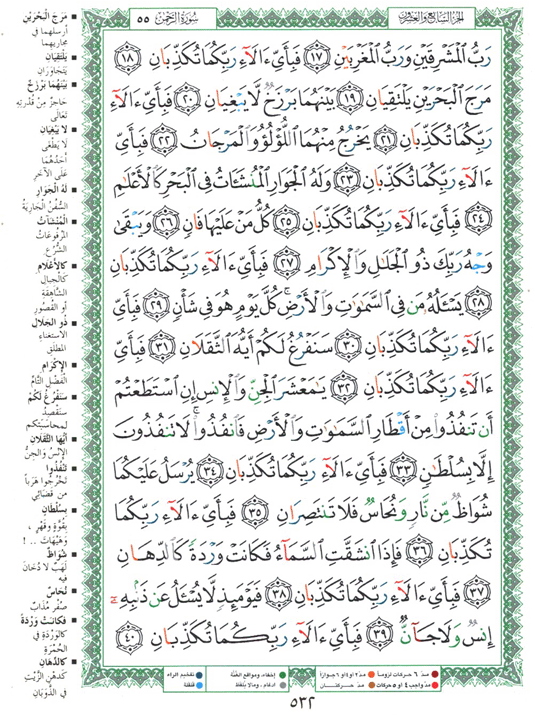 الجزء السابع والعشرون
سورة الرحمن
٥٥
رَبُّ الْمَشْرِقَيْنِ وَرَبُّ الْمَغْرِبَيْنِ ﴿١٧﴾ فَبِأَيِّ ءَالَآءِ رَبِّكُمَا تُكَذِّبَانِ ﴿١٨﴾
مَرَجَ الْبَحْرَيْنِ يَلْتَقِيَانِ ﴿١٩﴾ بَيْنَهُمَا بَرْزَخٌ لَّا يَبْغِيَانِ ﴿٢٠﴾ فَبِأَيِّ ءَالَآءِ
رَبِّكُمَا تُكَذِّبَانِ ﴿٢١﴾ يَخْرُجُ مِنْهُمَا اللُّؤْلُؤُ وَالْمَرْجَانُ ﴿٢٢﴾ فَبِأَيِّ
ءَالَآءِ رَبِّكُمَا تُكَذِّبَانِ ﴿٢٣﴾ وَلَهُ الْجَوَارِ الْمُنشَئَاتُ فِي الْبَحْرِ كَالْأَعْلَٰمِ
﴿٢٤﴾ فَبِأَيِّ ءَالَآءِ رَبِّكُمَا تُكَذِّبَانِ ﴿٢٥﴾ كُلُّ مَنْ عَلَيْهَا فَانٍ ﴿٢٦﴾ وَيَبْقَىٰ
وَجْهُ رَبِّكَ ذُو الْجَلَٰلِ وَالْإِكْرَامِ ﴿٢٧﴾ فَبِأَيِّ ءَالَآءِ رَبِّكُمَا تُكَذِّبَانِ
﴿٢٨﴾ يَسْـَٔلُهُ مَن فِي السَّمَٰوَٰتِ وَالْأَرْضِ ۚ كُلَّ يَوْمٍ هُوَ فِي شَأْنٍ ﴿٢٩﴾ فَبِأَيِّ
ءَالَآءِ رَبِّكُمَا تُكَذِّبَانِ ﴿٣٠﴾ سَنَفْرُغُ لَكُمْ أَيُّهَ الثَّقَلَانِ ﴿٣١﴾ فَبِأَيِّ
ءَالَآءِ رَبِّكُمَا تُكَذِّبَانِ ﴿٣٢﴾ يَٰمَعْشَرَ الْجِنِّ وَالْإِنسِ إِنِ اسْتَطَعْتُمْ
أَن تَنفُذُوا مِنْ أَقْطَارِ السَّمَٰوَٰتِ وَالْأَرْضِ فَانفُذُوا ۚ لَا تَنفُذُونَ
إِلَّا بِسُلْطَٰنٍ ﴿٣٣﴾ فَبِأَيِّ ءَالَآءِ رَبِّكُمَا تُكَذِّبَانِ ﴿٣٤﴾ يُرْسَلُ عَلَيْكُمَا
شُوَاظٌ مِّن نَّارٍ وَنُحَاسٌ فَلَا تَنتَصِرَانِ ﴿٣٥﴾ فَبِأَيِّ ءَالَآءِ رَبِّكُمَا
تُكَذِّبَانِ ﴿٣٦﴾ فَإِذَا انشَقَّتِ السَّمَآءُ فَكَانَتْ وَرْدَةً كَالدِّهَانِ
﴿٣٧﴾ فَبِأَيِّ ءَالَآءِ رَبِّكُمَا تُكَذِّبَانِ ﴿٣٨﴾ فَيَوْمَئِذٍ لَّا يُسْـَٔلُ عَن ذَنۢبِهِ
إِنسٌ وَلَا جَآنٌّ ﴿٣٩﴾ فَبِأَيِّ ءَالَآءِ رَبِّكُمَا تُكَذِّبَانِ ﴿٤٠﴾
مَرَجَ الْبَحْرَيْنِ
أرسلهما في
مجاريهما
يَلْتَقِيَانِ
يتجاوران
بَيْنَهُمَا بَرْزَخٌ
حاجز من قدرته
تعالى
لا يَبْغِيَانِ
لا يطغى
أحدهما
على الآخر
لَهُ الْجَوَارِ
السفن الجارية
الْمُنْشَآتُ
المرفوعات
الشرع
كالأعْلامِ
كالجبال
الشاهقة
أو القصور
ذُو الجَلالِ
الاستغناء
المطلق
الإِكْرَامِ
الفضل التام
سَنَفْرُغُ لَكُمْ
سنقصد
لمحاسبتكم
أيُّهَا الثَّقَلانِ
الإنس والجن
تَنْفُذُوا
تخرجوا هربا
من قضائي
بِسُلْطَانٍ
بقوة وقهر،
وهيهات .. !
شُوَاظٌ
لهب لا دخان
فيه
نُحَاسٌ
صفر مذاب
فَكَانَتْ وَرْدَةً
كالوردة في
الحمرة
كالدِّهَانِ
كدهن الزيت
في الذوبان
مد ٦ حركات لزوماً
مد ٢ أو ٤ أو ٦ جوازاً
إخفاء، ومواقع الغنة
تفخيم الراء
مد واجب ٤ أو ٥ حركات
مد حركتان
ادغام، وما لا يلفظ
قلقلة
٥٣٢